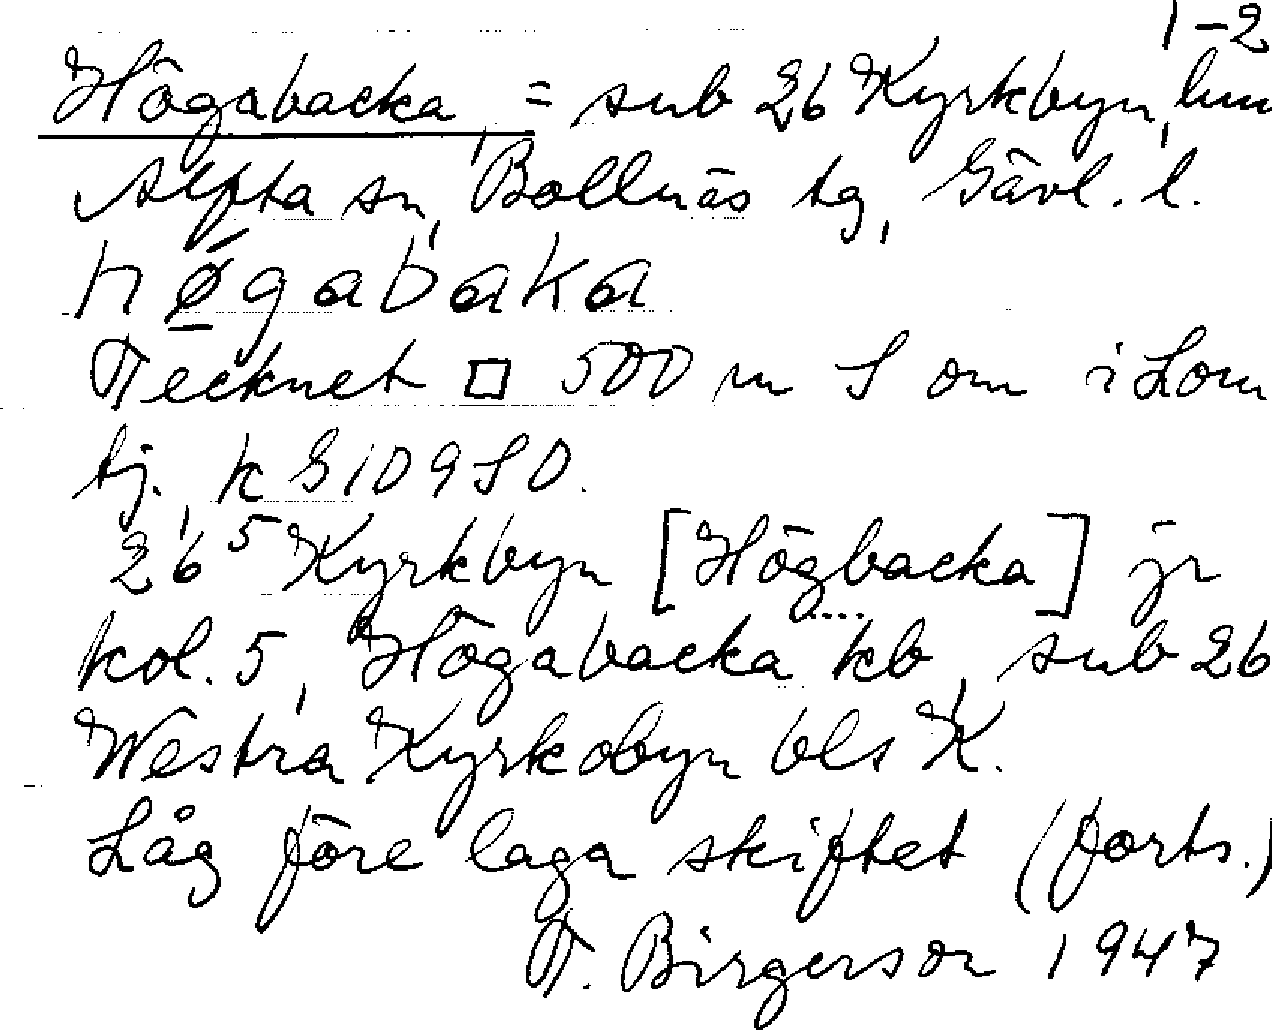 1-2
Högabacka, = sub 26 Kyrkbyn, hm
Alfta sn, Bollnäs tg, Gävl. l.
hǿ̱gabaka
Tecknet □ 500 m S om i Lom
tj. k G109SO.
26⁵ Kyrkbyn [Högbacka] jr
kol. 5, Högabacka kb, sub 26
Westra Kyrkobyn bls K.
Låg före laga skiftet (forts.)
T. Birgerson 1947